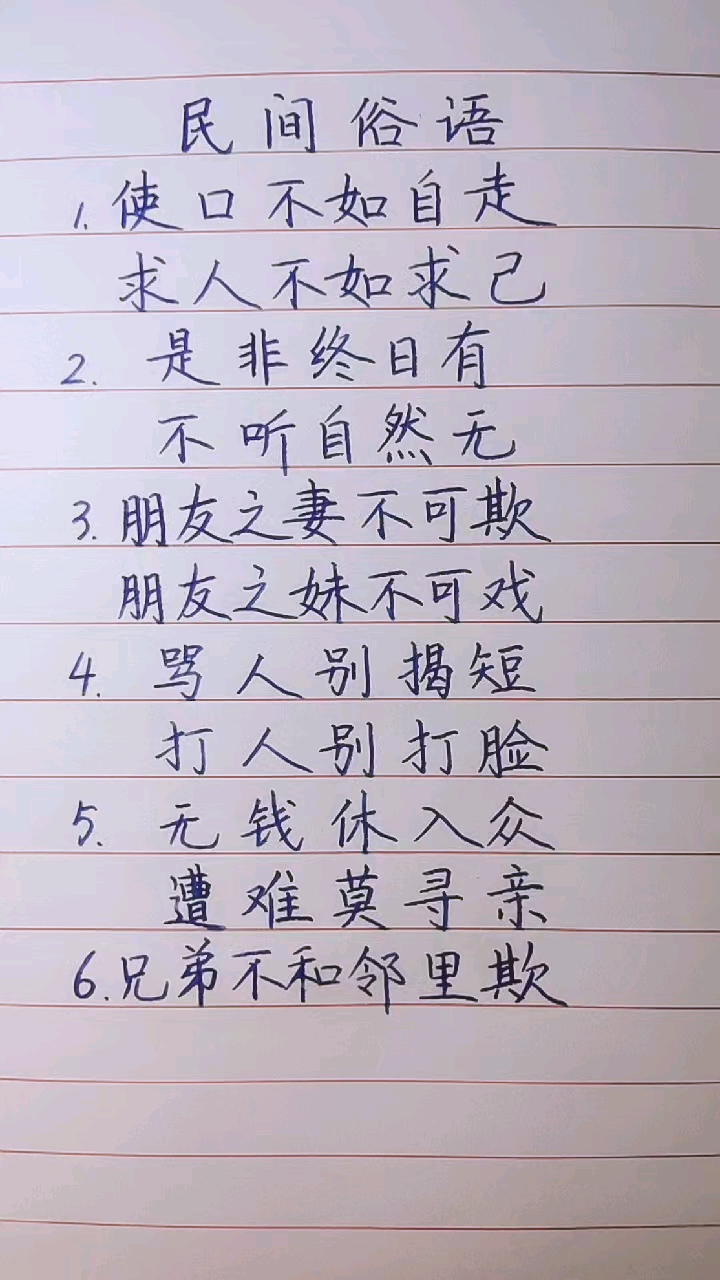 民间俗语
1.使口不如自走
求人不如求己
2.是非终日有
不听自然无
3.朋友之妻不可欺
朋友之妹不可戏
4.骂人别揭短
打人别打脸
5.无钱休入众
遭难莫寻亲
6.兄弟不和邻里欺